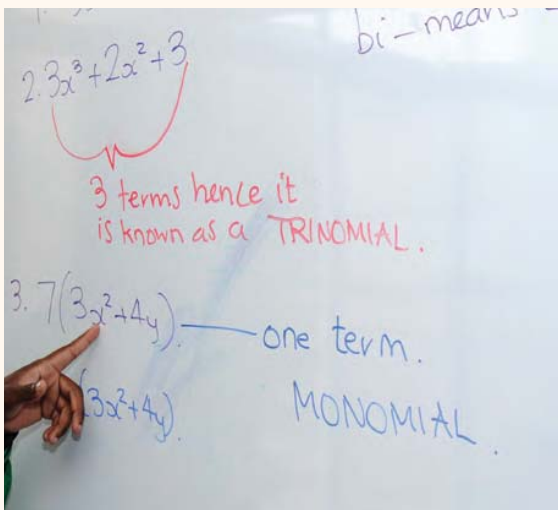 bi - means
2. 3x³ + 2x² + 3
3 terms hence it
is known as a TRINOMIAL.
3. 7(3x² + 4y). one term.
(3x² + 4y). MONOMIAL.